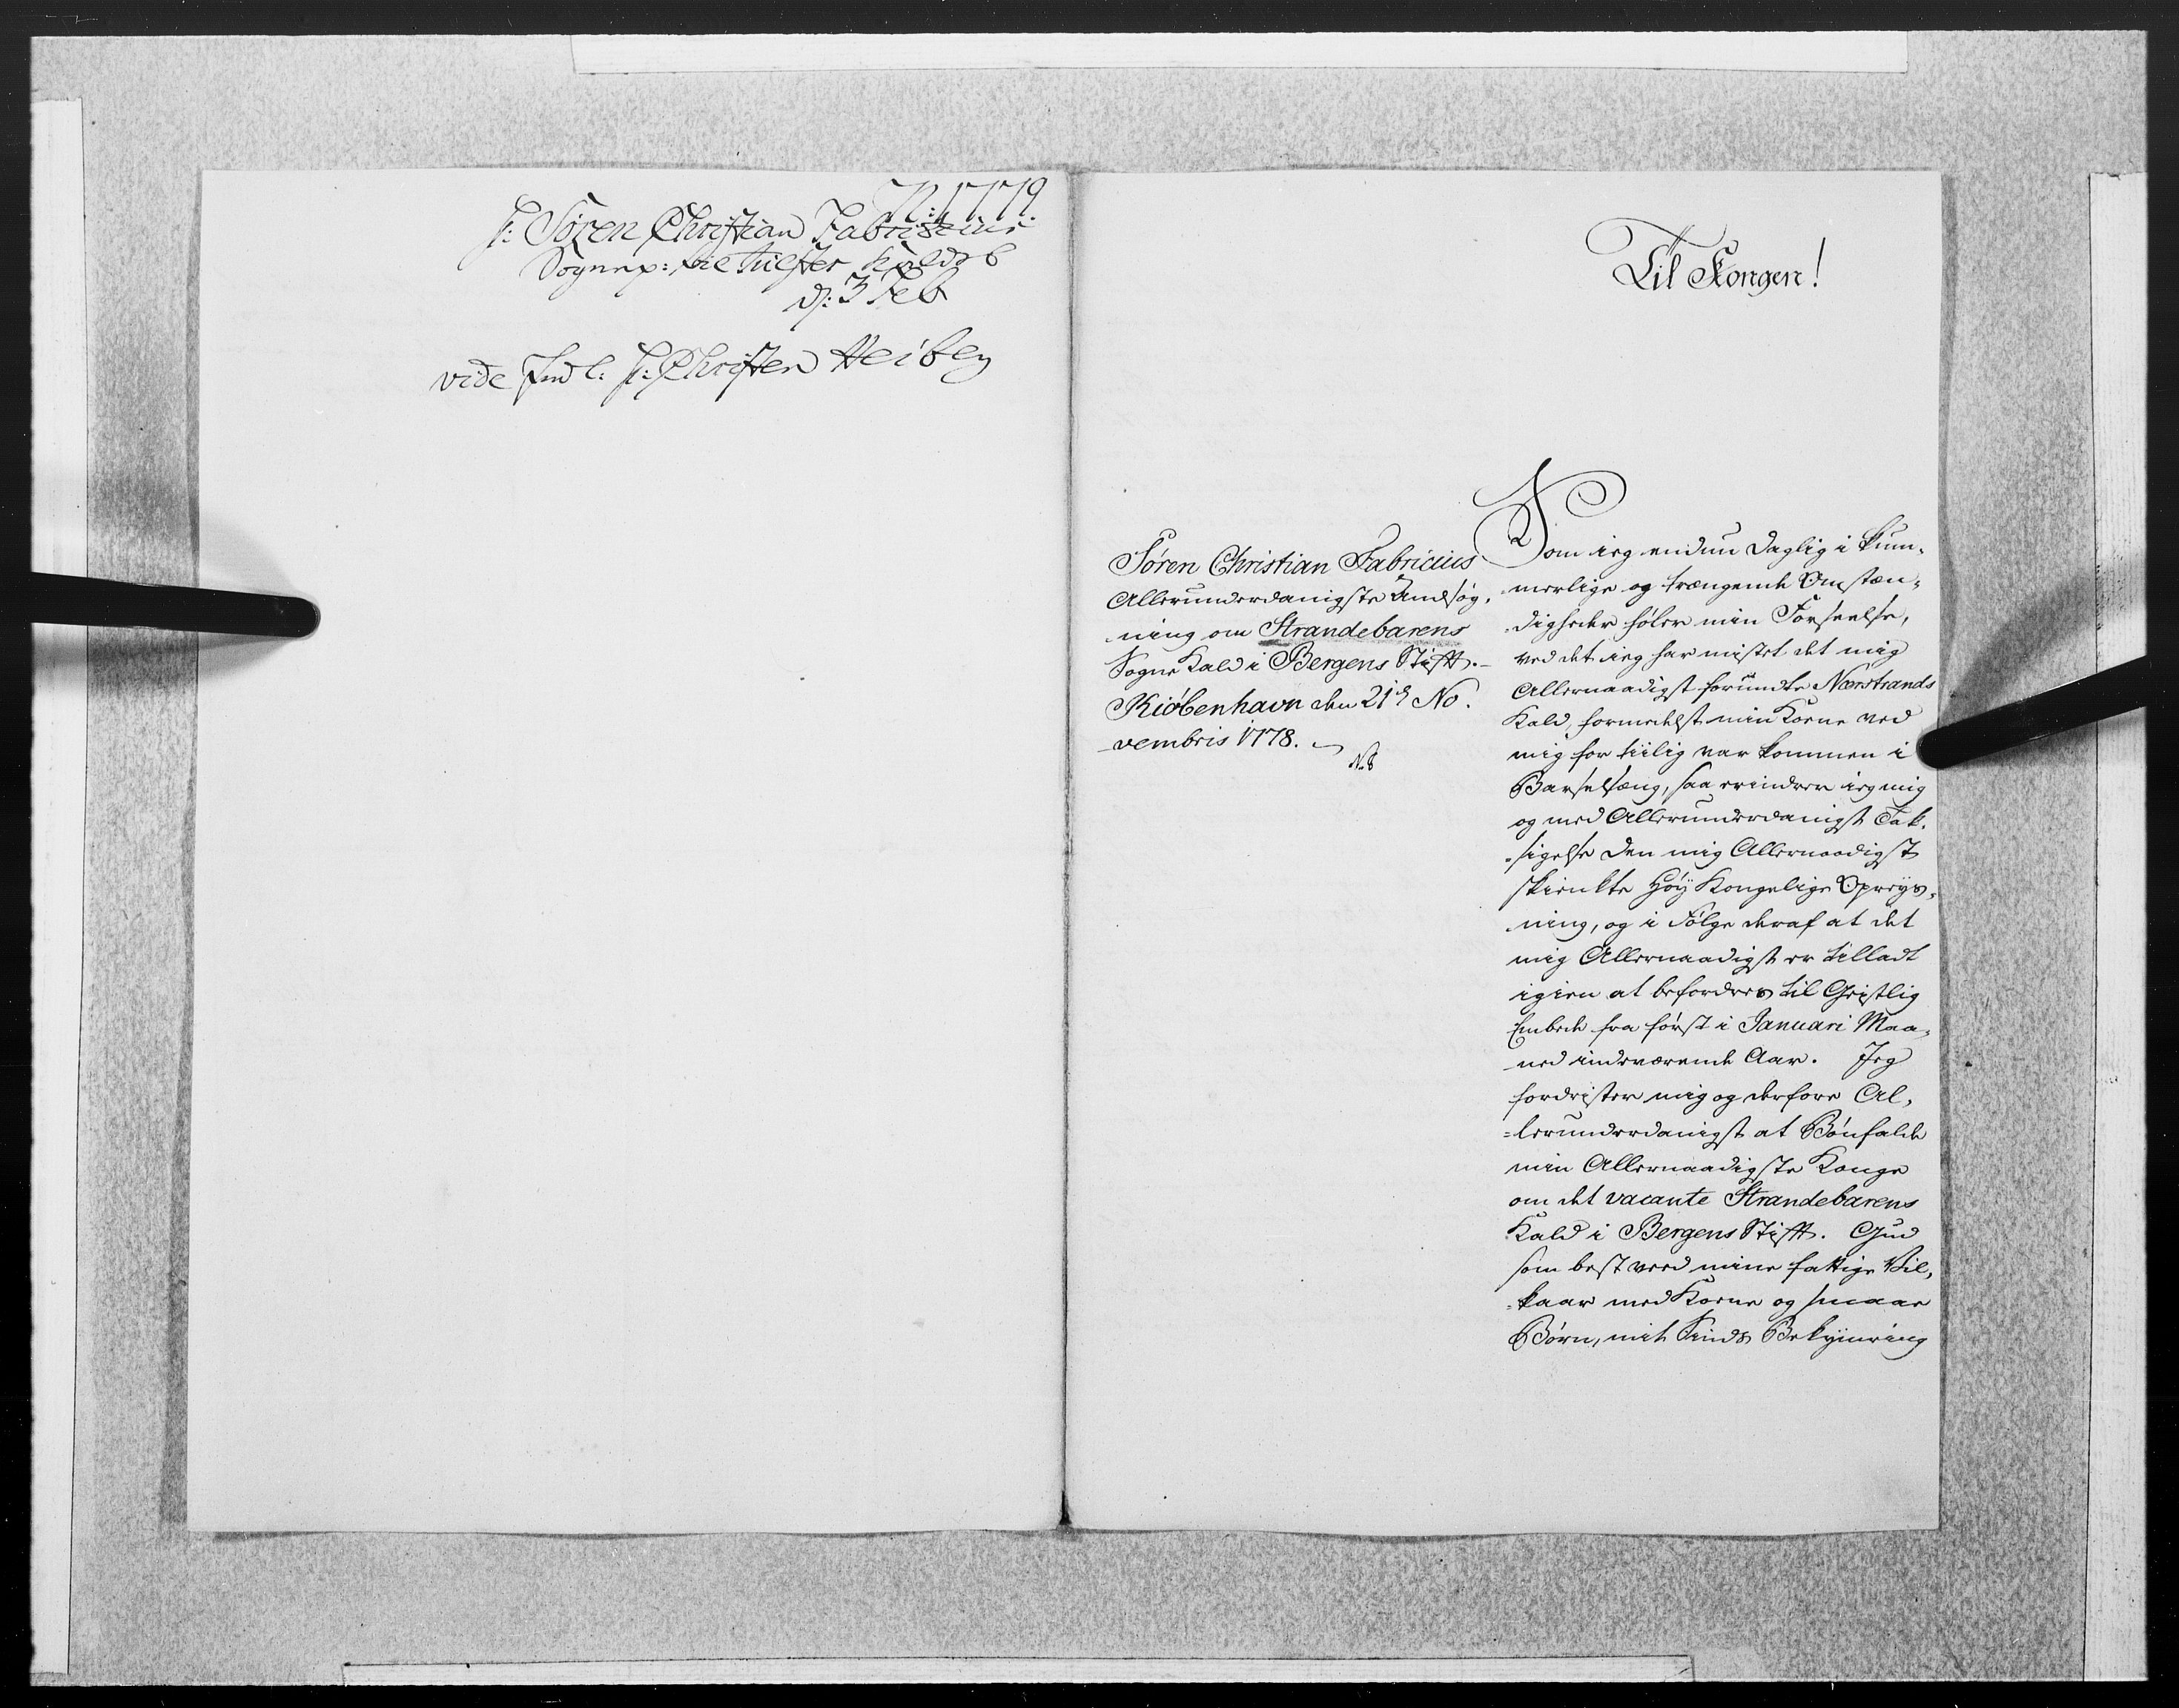 N: 1779.
h: Søren Christian Fabricius
Sognep: til
d: 3 Feb
vide Indl: h: Christen Heiberg
Til Kongen!
Søren Christian Fabricius
Allerunderdanigste Ansøg,
ning om Strandebarens
Sogne Kald i Bergens Stift.
Kiöbenhavn den 21de No.
vembris 1778.
N. 8
Som ieg endnu daglig i kum,
merlige og trængende Omstæn,
digheder føler min Forseelse,
ved det ieg har mistet det mig
Allernaadigst forundte Nærstrands
Kald, formedelst min Kone ved
mig for tiilig var kommen i
Barselseng, saa erindrer ieg mig
og med Allerunderdanigst Tak,
sigelse den mig Allernaadigst
skienkte Høy Kongelige Opreys,
ning, og i Følge deraf at det
mig Allernaadigst er tilladt
igien at befordres til Geistlig
Embede fra først i Januari Maa,
ned indeværende Aar. Jeg
fordrister mig og derfore Al,
=lerunderdanigst at Bønfalde
min Allernaadigste Konge
om det vacante Strandebarens
Kald i Bergens Stift. Gud
som best veed mine fattige Vil,
kaar med Kone og smaae
Børn, mit Sinds Bekymring